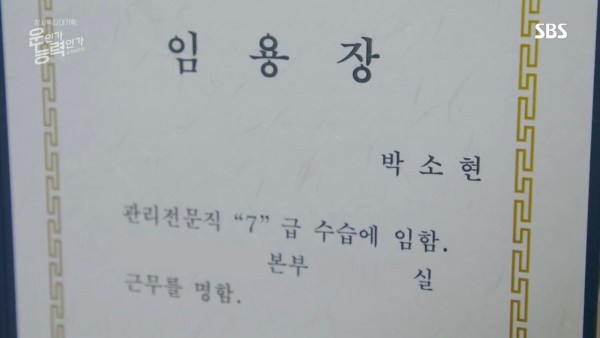 운인가
능력인가
SBS
임 용 장
박 소 현
관리전문직 “7” 급 수습에 임함.
본부 실
근무를 명함.